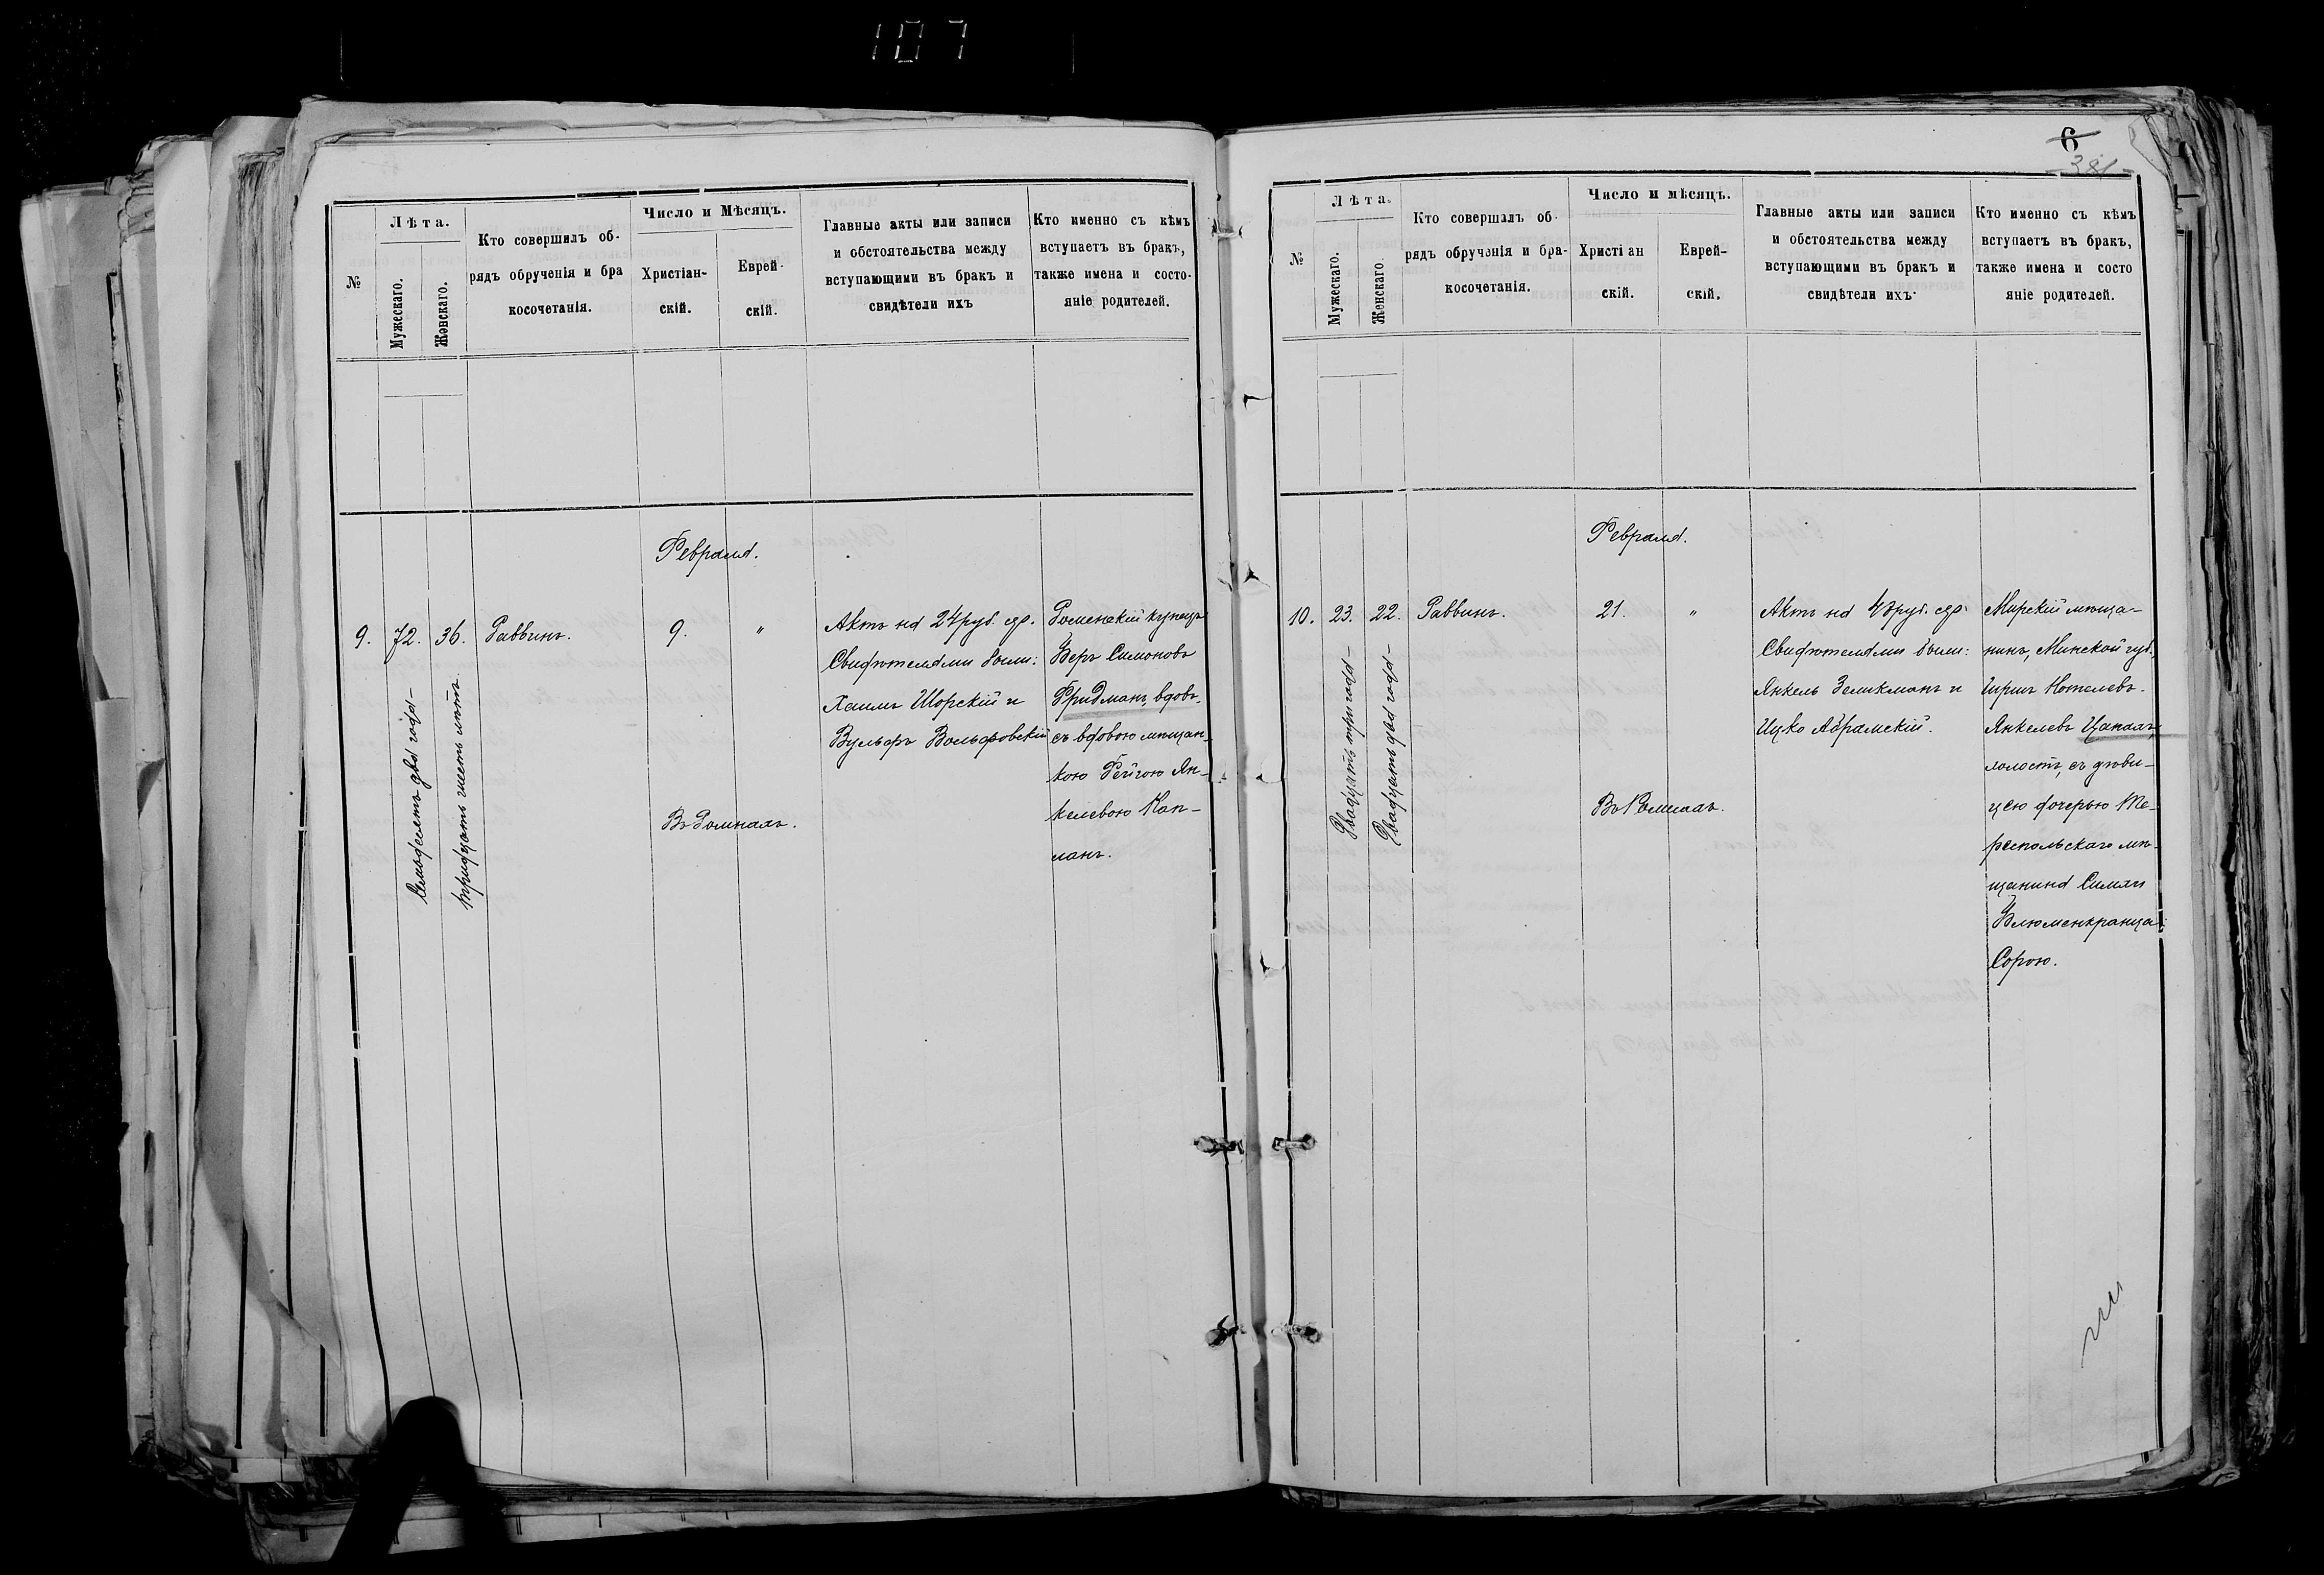 107
№
Лѣта.
Мужескаго.
Женскаго.
Кто совершилъ об-
рядъ обрученія и бра
косочетанія.
Число и Мѣсяцъ.
Христіан-
скій.
Еврей-
скій.
Главные акты или записи
и обстоятельства между
вступающими въ бракъ и
свидѣтели ихъ
Кто именно съ кѣмъ
вступаетъ въ бракъ,
также имена и состо-
яніе родителей.
Февраля.
9.
72.
Семьдесятъ два года
36.
тридцать шесть лѣтъ.
Раввинъ.
9.
"
Въ Ромнахъ.
Актъ на 24 руб. сер.
Свидѣтелями были:
Хаимъ Шорскій и
Вульфъ Вольфовскій
Роменскій купецъ
Беръ Симоновъ
Фридманъ, вдовъ,
съ вдовою мѣщан-
кою Рейзою Ян-
келевою Кап-
ланъ.
6
381
№
Лѣта.
Мужескаго.
Женскаго.
Кто совершилъ об-
рядъ обрученія и бра-
косочетанія.
Число и мѣсяцъ.
Христіан
скій.
Еврей-
скій.
Главные акты или записи
и обстоятельства между
вступающими въ бракъ и
свидѣтели ихъ
Кто именно съ кѣмъ
вступаетъ въ бракъ,
также имена и состо
яніе родителей.
Февраля.
10.
23.
Двадцать три года
22.
Двадцать два года
Раввинъ.
21.
"
Въ Ромнахъ.
Актъ на 48 руб. сер.
Свидѣтелями были:
Янкель Зеликманъ и
Ицко Абрамскій.
Мирскій мѣща-
нинъ, Минской губ.,
Гиршъ Нотелевъ-
Янкелевъ
холостъ, съ дѣви-
цею дочерью Те-
респольскаго мѣ-
щанина Симхи
Блюменкранца:
Сорою.